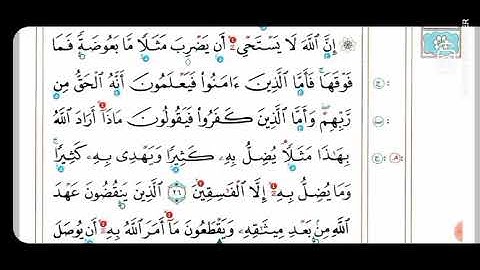 ۞ إِنَّ ٱللَّهَ لَا يَسْتَحْىِۦٓ أَن يَضْرِبَ مَثَلًا مَّا بَعُوضَةً فَمَا
فَوْقَهَا ۚ فَأَمَّا ٱلَّذِينَ ءَامَنُوا۟ فَيَعْلَمُونَ أَنَّهُ ٱلْحَقُّ مِن
رَّبِّهِمْ ۖ وَأَمَّا ٱلَّذِينَ كَفَرُوا۟ فَيَقُولُونَ مَاذَآ أَرَادَ ٱللَّهُ
بِهَٰذَا مَثَلًا ۘ يُضِلُّ بِهِۦ كَثِيرًا وَيَهْدِى بِهِۦ كَثِيرًا ۚ
وَمَا يُضِلُّ بِهِۦٓ إِلَّا ٱلْفَٰسِقِينَ ٢٦ ٱلَّذِينَ يَنقُضُونَ عَهْدَ
ٱللَّهِ مِنۢ بَعْدِ مِيثَٰقِهِۦ وَيَقْطَعُونَ مَآ أَمَرَ ٱللَّهُ بِهِۦٓ أَن يُوصَلَ